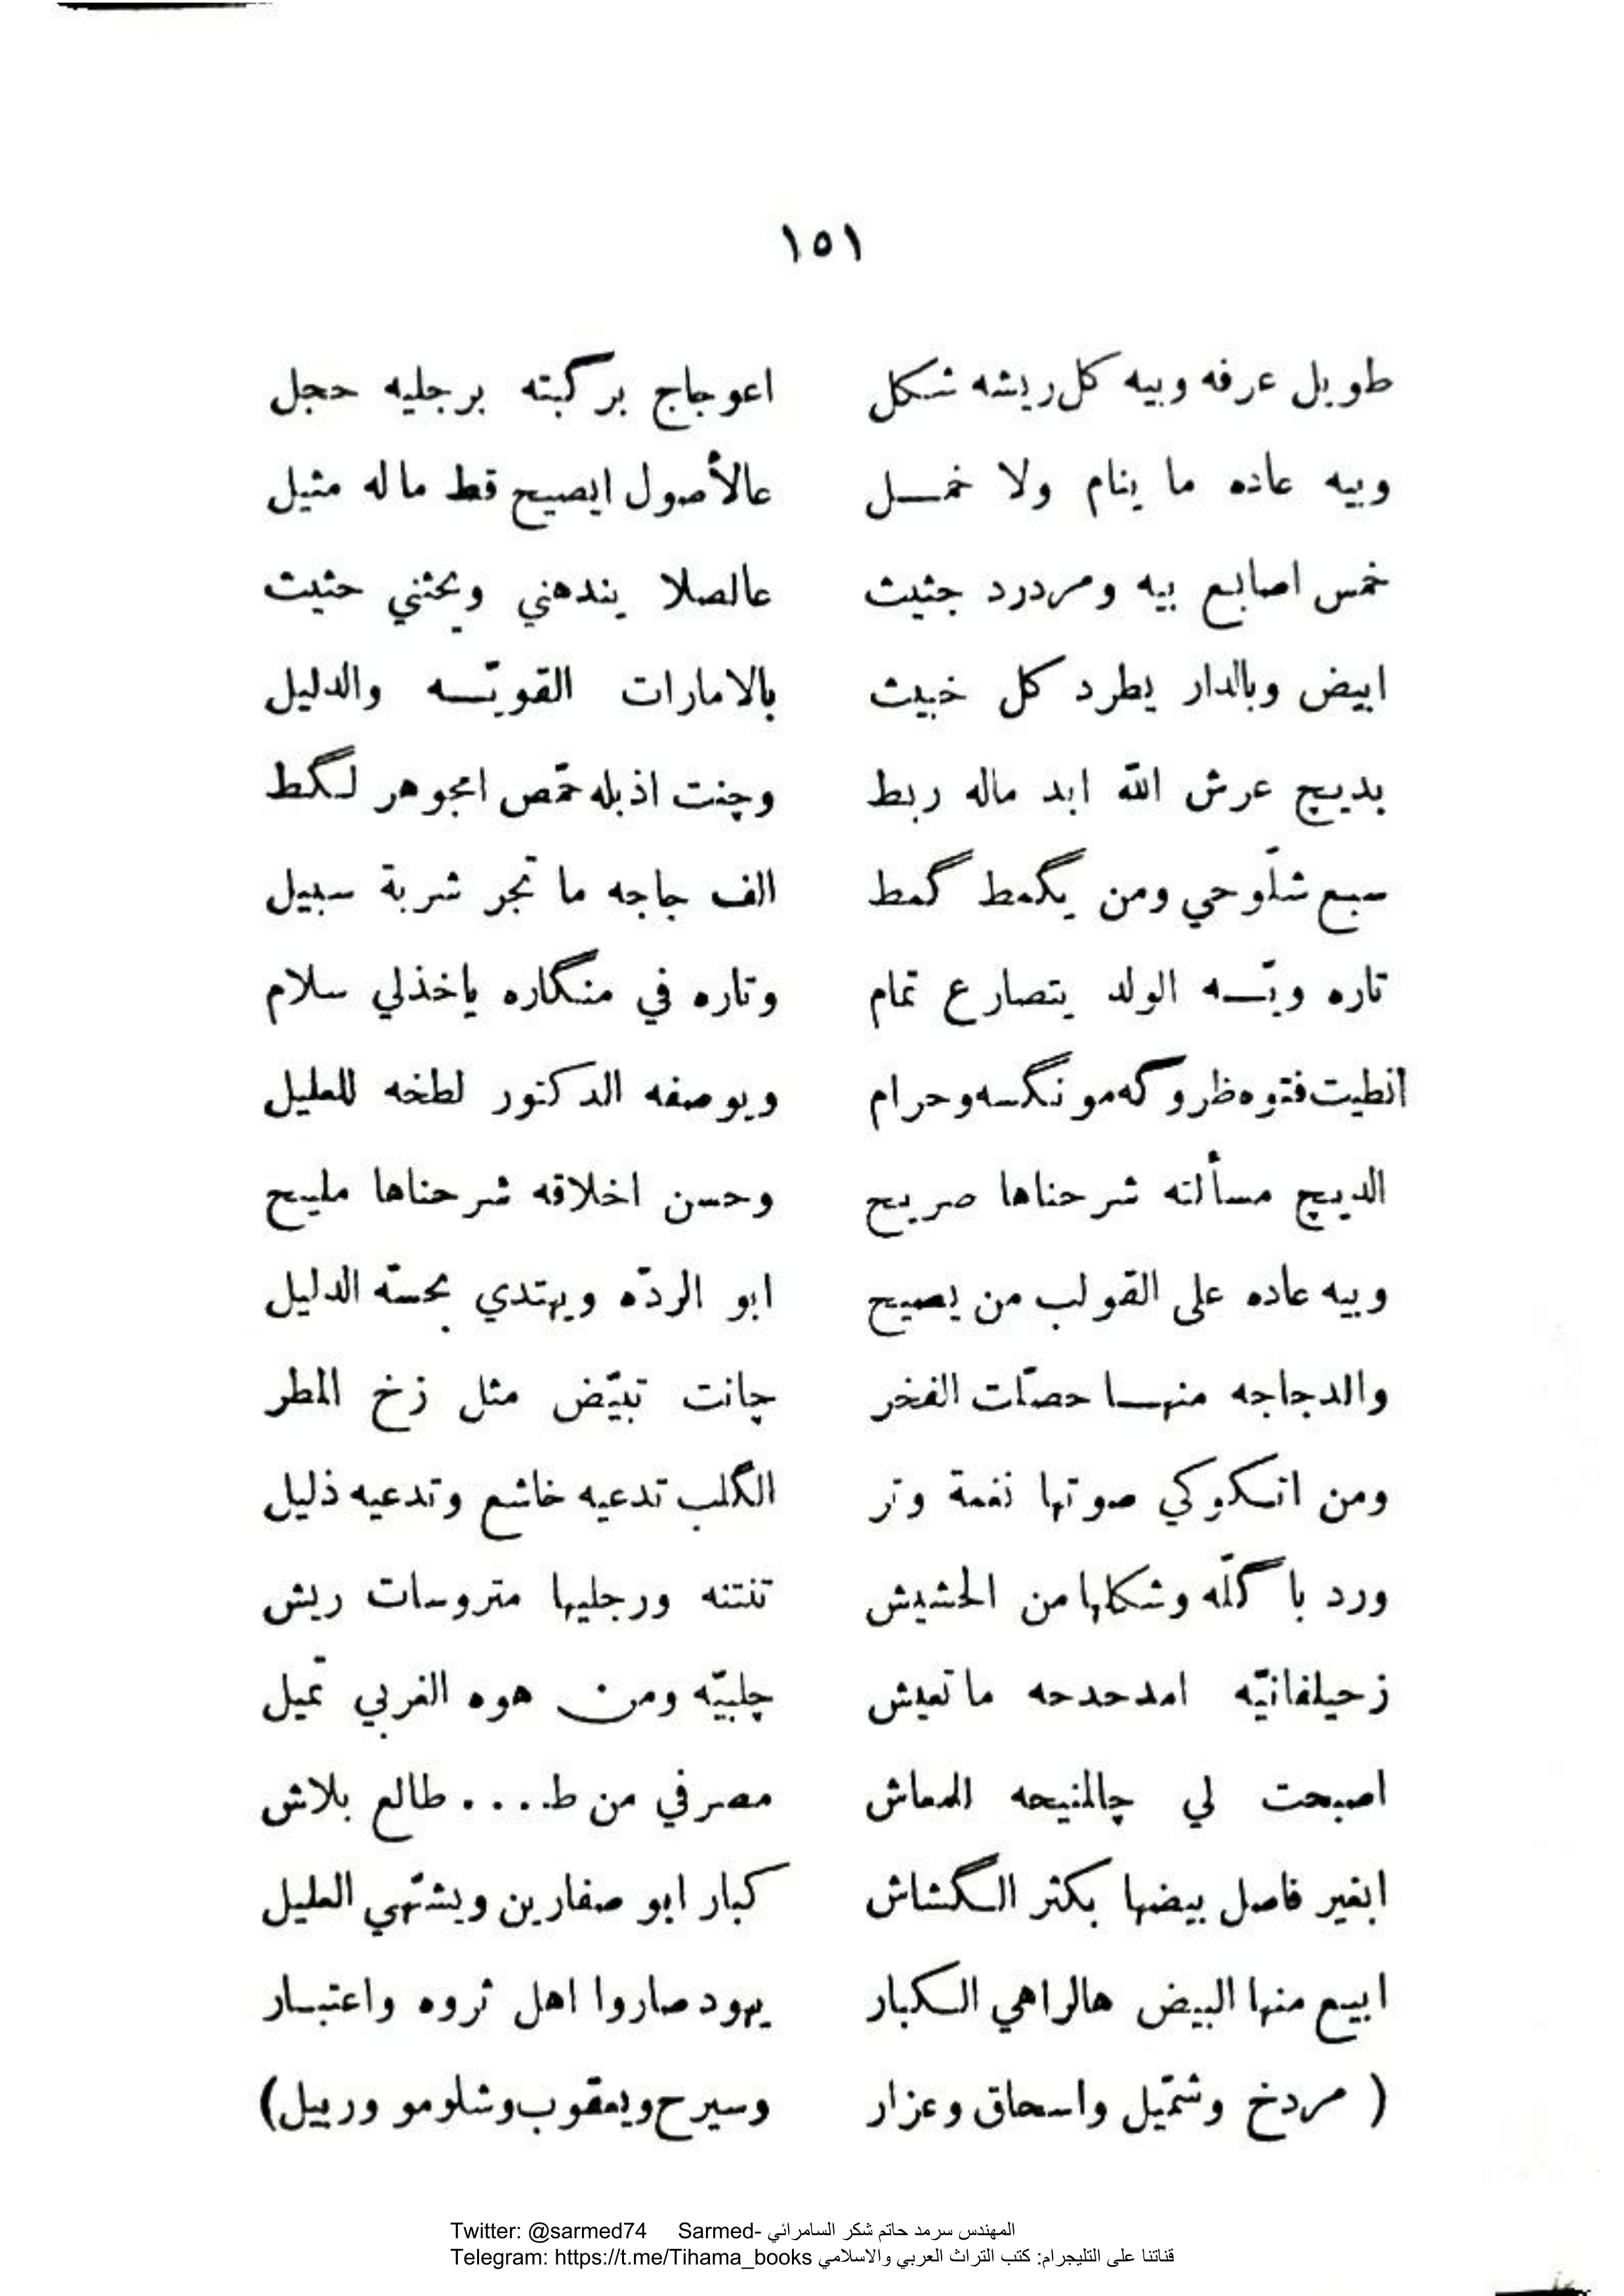 ١٥١
طويل عرفه وبيه كل ريشه شكل اعوجاج برگبته برجليه حجل
وبيه عاده ما ينام ولا خمــل عالأصول ايصيح قط ماله مثيل
خمس اصابع بيه ومردرد جثيث عالصلا يندهني ويحثني حثيث
ابيض وبالدار يطرد كل خبيث بالامارات القويّــه والدليل
بديـچ عرش الله ابد ماله ربط وچنت اذبله حمّص امجوهر لـگط
سبع شلّوحي ومن يگمط گمط الف جاجه ما تجر شربة سبيل
تاره ويّــه الولد يتصارع تمام وتاره في منـگاره ياخذلي سلام
انطيت فتوه ظروگه مو نگسه وحرام ويوصفه الدكتور لطخه للعليل
الديـچ مسألته شرحناها صريح وحسن اخلاقه شرحناها مليح
وبيه عاده على القولب من يصيح ابو الردّه ويهتدي بحسّه الدليل
والدجاجه منهــا حصّلت الفخر چانت تبيّض مثل زخ المطر
ومن اتـكوكي صوتها نغمة وتر الگلب تدعيه خاشع وتدعيه ذليل
ورد باگلّه وشكلها من الحشيش تنتنه ورجليها متروسات ريش
زحيلفانيّه امدحدحه ماتعيش چلبيّه ومن هوه الغربي تميل
اصبحت لي چالمنيحه للمعاش مصرفي من ط.... طالع بلاش
ابغير فاصل بيضها بكثر الـگشاش كبار ابو صفارين ويشتهي العليل
ابيع منها البيض هالراهي الـكبار يهود صاروا اهل ثروه واعتبــار
( مردخ وشمّيل واسحاق وعزار وسيرح ويعقوب وشلومو وربيل)
Twitter: @sarmed74 Sarmed- المهندس سرمد حاتم شكر السامرائي
Telegram: https://t.me/Tihama_books قناتنا على التليجرام: كتب التراث العربي والاسلامي